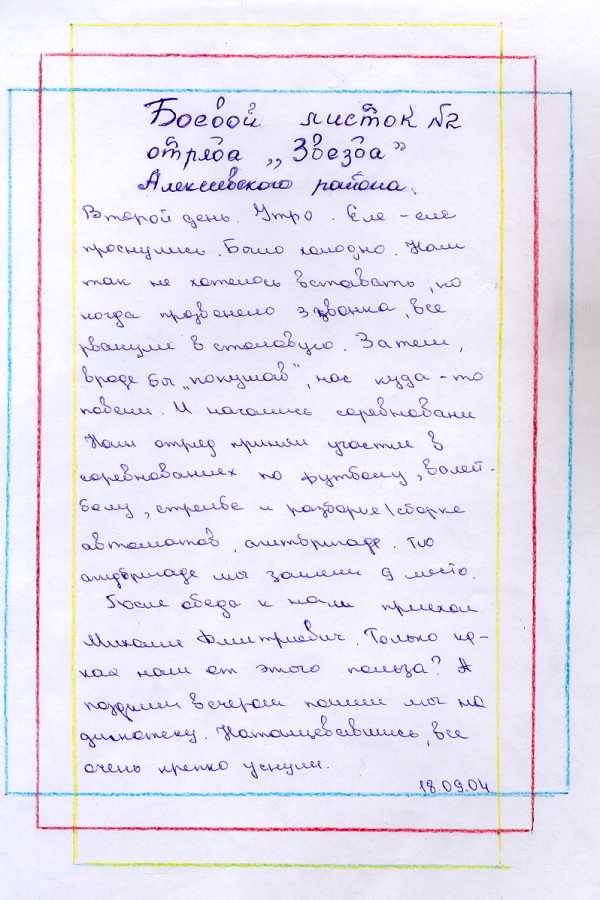 Боевой листок №2
отряда „Звезда”
Алексеевского района.
Второй день. Утро. Еле - еле
проснулись. Было холодно. Нам
так не хотелось вставать, но
когда прозвенело 3 звонка, все
рванули в столовую. Затем,
вроде бы „покушав”, нас куда - то
повели. И начались соревновани
Наш отряд принял участие в
соревнованиях по футболу, волей-
болу, стрельбе и разборке/сборке
автоматов, агитбригаде. По
агитбригаде мы заняли 9 место.
После обеда к нам приехал
Михаил Дмитриевич. Только ка-
кая нам от этого польза? А
поздним вечером пошли мы на
дискотеку. Натанцевавшись, все
очень крепко уснули.
18.09.04